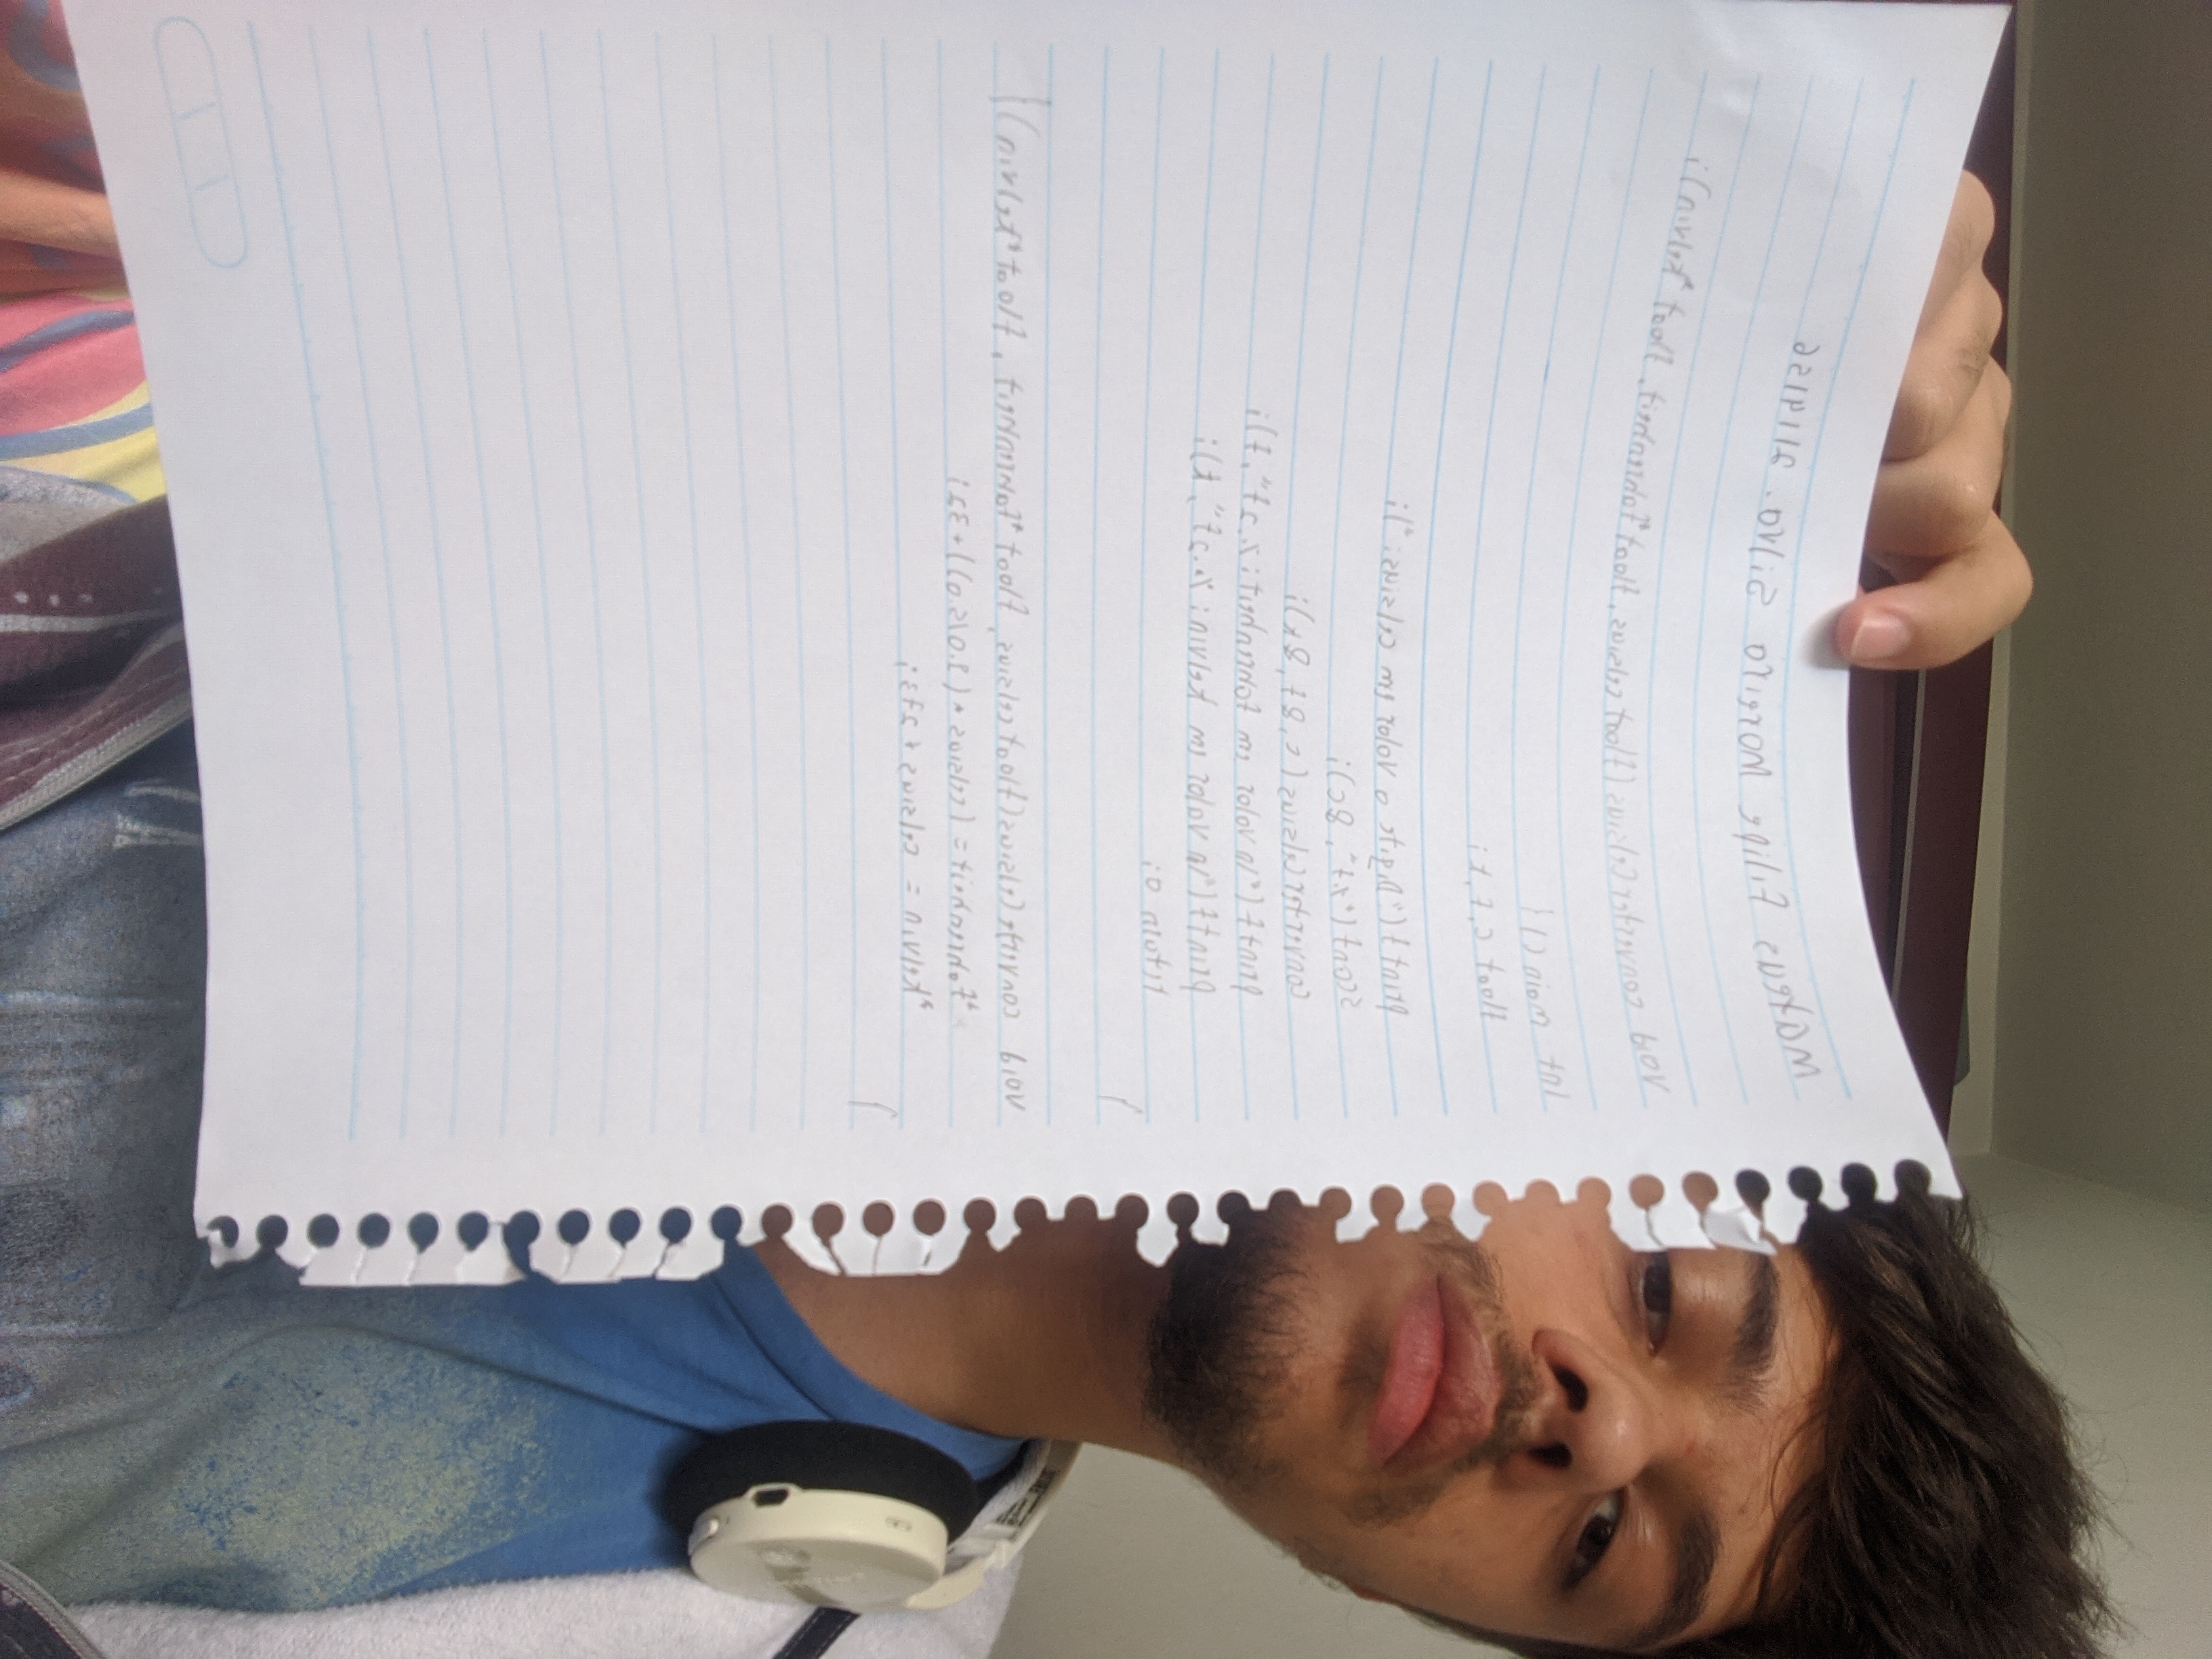 Mateus Filipe Moreira Silva. 2114156
Void converterCelsius (float celsius, float *fahrenheit, float *kelvin);
Int main () {
float c, f, k;
printf ("Digite o valor em celsius: ");
scanf ("%f", &c);
converterCelsius (c, &f, &k);
printf ("\n valor em fahrenheit: %.2f", f);
printf ("\n valor em kelvin: %.2f", k);
return 0;
}
Void converte Celsius (float celsius, float *fahrenheit, float *kelvin) {
*fahrenheit = (celsius * (9.0/5.0)) + 32;
*kelvin = celsius + 273;
}